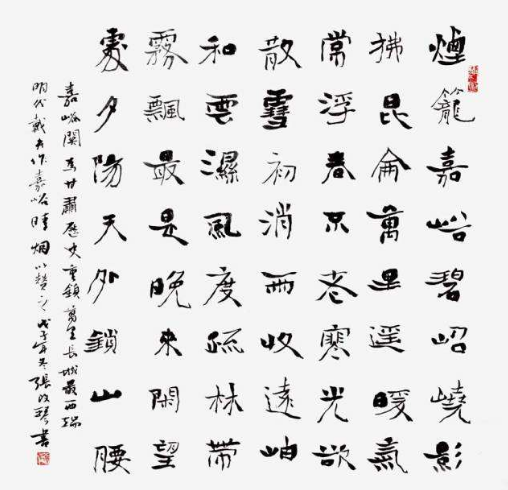 煙籠嘉峪碧岧嶢影
拂昆侖萬里遥暖氣
常浮春不老寒光欲
散雪初消雨收遠岫
和雲濕風度疏林帶
霧飄最是晚來閑望
處夕陽天外鎖山腰
嘉峪關為甘肅歷史重鎮萬里長城最西端
明代戴弁作嘉峪晴烟以贊之戊子年冬張改琴書